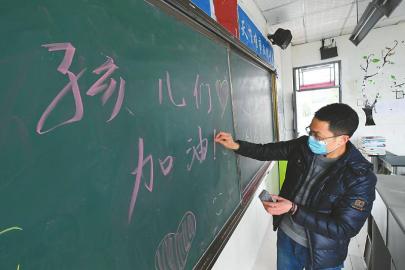 孩儿们♡
加油!